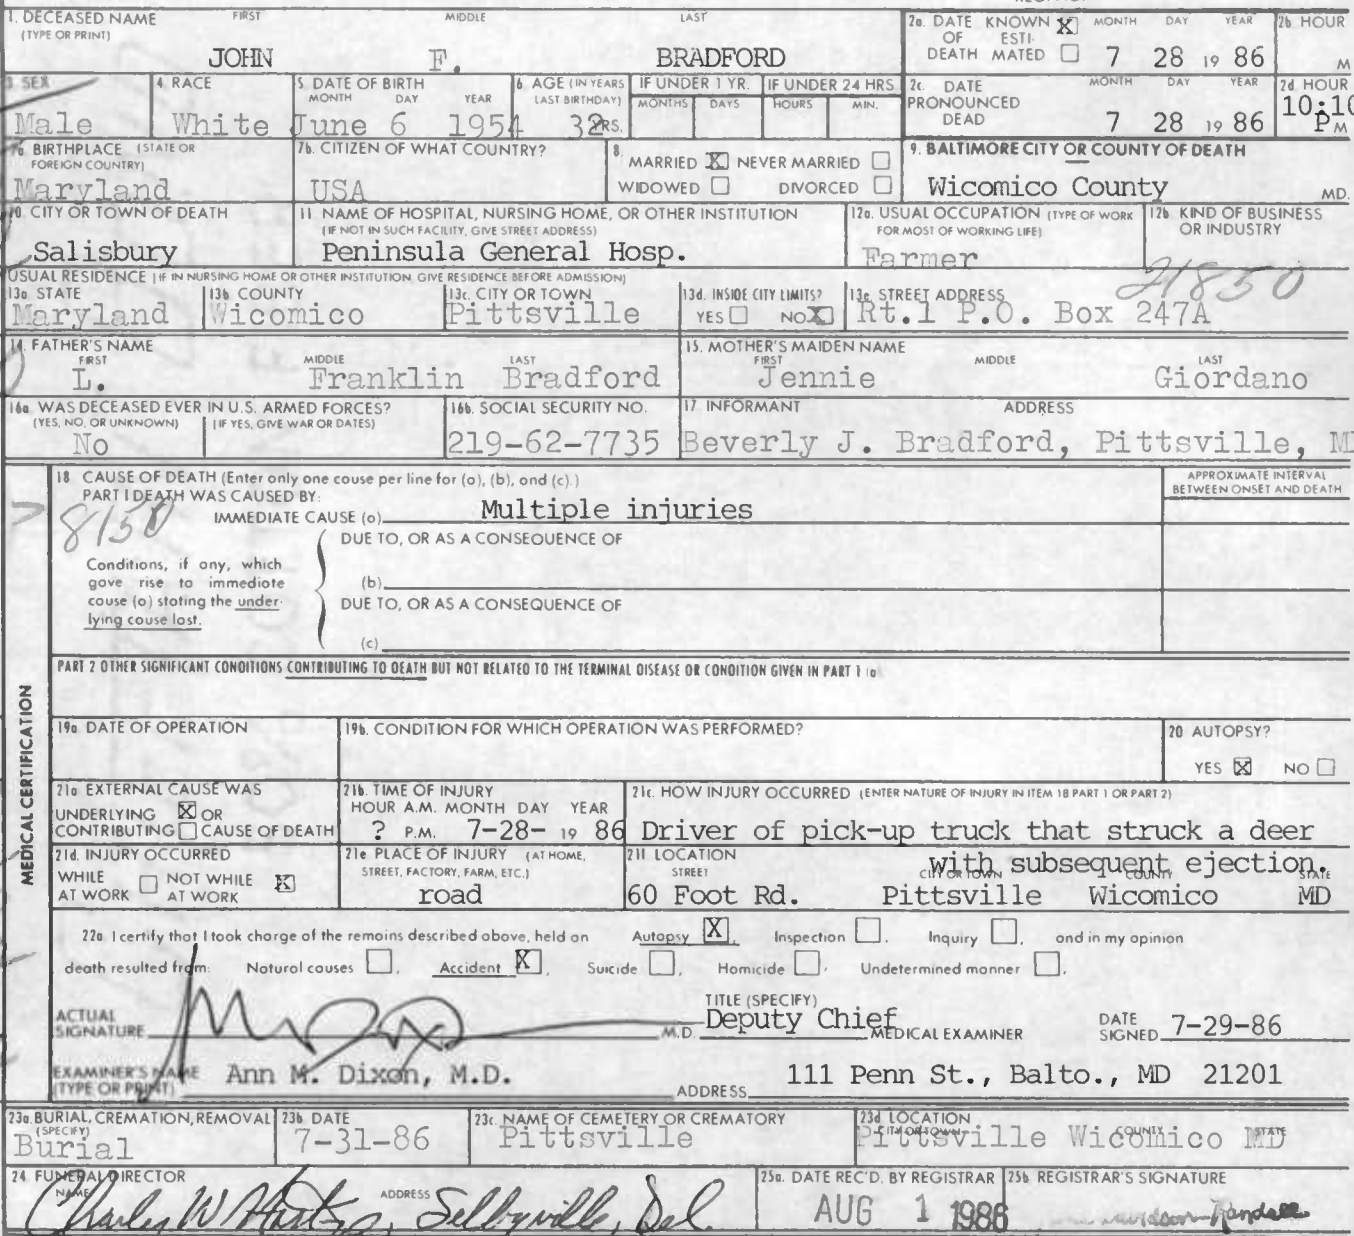 1. DECEASED NAME FIRST MIDDLE LAST
(TYPE OR PRINT)
JOHN F. BRADFORD
2a. DATE KNOWN X MONTH DAY YEAR 2b HOUR
OF ESTI-
DEATH MATED 7 28 19 86 M
3 SEX 4 RACE 5 DATE OF BIRTH 6 AGE (IN YEARS IF UNDER 1 YR. IF UNDER 24 HRS.
MONTH DAY YEAR LAST BIRTHDAY) MONTHS DAYS HOURS MIN.
Male White June 6 1954 32 YRS.
2c. DATE MONTH DAY YEAR 2d HOUR
PRONOUNCED
DEAD 7 28 19 86 10:10 P M
BIRTHPLACE (STATE OR
FOREIGN COUNTRY)
Maryland
7b. CITIZEN OF WHAT COUNTRY?
USA
8 MARRIED X NEVER MARRIED
WIDOWED DIVORCED
9. BALTIMORE CITY OR COUNTY OF DEATH
Wicomico County MD.
10. CITY OR TOWN OF DEATH
Salisbury
11 NAME OF HOSPITAL, NURSING HOME, OR OTHER INSTITUTION
(IF NOT IN SUCH FACILITY, GIVE STREET ADDRESS)
Peninsula General Hosp.
12a. USUAL OCCUPATION (TYPE OF WORK
FOR MOST OF WORKING LIFE)
Farmer
12b KIND OF BUSINESS
OR INDUSTRY
USUAL RESIDENCE (IF IN NURSING HOME OR OTHER INSTITUTION GIVE RESIDENCE BEFORE ADMISSION)
21850
13a STATE 13b COUNTY 13c. CITY OR TOWN 13d. INSIDE CITY LIMITS? 13e. STREET ADDRESS
Maryland Wicomico Pittsville YES NO X Rt.1 P.O. Box 247A
14. FATHER'S NAME
FIRST MIDDLE LAST
L. Franklin Bradford
15. MOTHER'S MAIDEN NAME
FIRST MIDDLE LAST
Jennie Giordano
16a WAS DECEASED EVER IN U.S. ARMED FORCES?
(YES, NO, OR UNKNOWN) (IF YES, GIVE WAR OR DATES)
No
16b. SOCIAL SECURITY NO.
219-62-7735
17 INFORMANT ADDRESS
Beverly J. Bradford, Pittsville, MD
MEDICAL CERTIFICATION
18 CAUSE OF DEATH (Enter only one cause per line for (a), (b), and (c).)
APPROXIMATE INTERVAL
BETWEEN ONSET AND DEATH
PART I DEATH WAS CAUSED BY:
8150
IMMEDIATE CAUSE (a) Multiple injuries
DUE TO, OR AS A CONSEQUENCE OF
Conditions, if any, which
gave rise to immediate
cause (a) stating the under-
lying cause last.
(b)
DUE TO, OR AS A CONSEQUENCE OF
(c)
PART 2 OTHER SIGNIFICANT CONDITIONS CONTRIBUTING TO DEATH BUT NOT RELATED TO THE TERMINAL DISEASE OR CONDITION GIVEN IN PART 1 (a)
19a DATE OF OPERATION 19b. CONDITION FOR WHICH OPERATION WAS PERFORMED? 20 AUTOPSY?
YES X NO
21a EXTERNAL CAUSE WAS
UNDERLYING X OR
CONTRIBUTING CAUSE OF DEATH
21b. TIME OF INJURY
HOUR A.M. MONTH DAY YEAR
? P.M. 7-28- 19 86
21c. HOW INJURY OCCURRED (ENTER NATURE OF INJURY IN ITEM 18 PART 1 OR PART 2)
Driver of pick-up truck that struck a deer
with subsequent ejection.
21d. INJURY OCCURRED
WHILE NOT WHILE X
AT WORK AT WORK
21e PLACE OF INJURY (AT HOME,
STREET, FACTORY, FARM, ETC.)
road
21f LOCATION
STREET CITY OR TOWN COUNTY STATE
60 Foot Rd. Pittsville Wicomico MD
22a I certify that I took charge of the remains described above, held on Autopsy X, Inspection, Inquiry, and in my opinion
death resulted from: Natural causes, Accident X, Suicide, Homicide, Undetermined manner.
ACTUAL
SIGNATURE M.D.
TITLE (SPECIFY)
Deputy Chief MEDICAL EXAMINER
DATE
SIGNED 7-29-86
EXAMINER'S NAME
(TYPE OR PRINT) Ann M. Dixon, M.D.
ADDRESS 111 Penn St., Balto., MD 21201
23a. BURIAL, CREMATION, REMOVAL 23b DATE 23c. NAME OF CEMETERY OR CREMATORY 23d LOCATION
(SPECIFY) CITY OR TOWN COUNTY STATE
Burial 7-31-86 Pittsville Pittsville Wicomico MD
24 FUNERAL DIRECTOR
NAME ADDRESS
Charles W Selbyville, Del.
25a. DATE REC'D. BY REGISTRAR
AUG 1 1986
25b REGISTRAR'S SIGNATURE
Randall